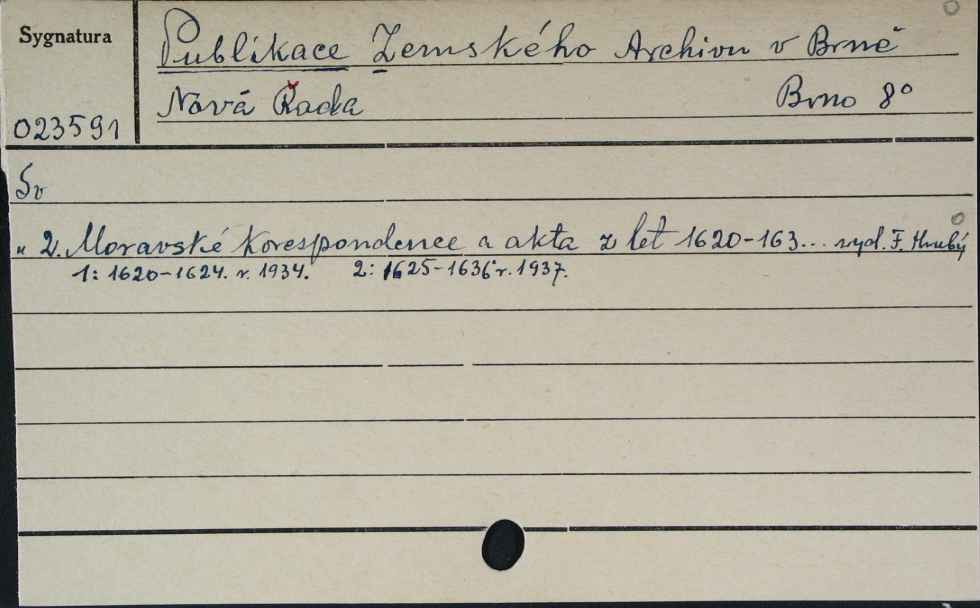 Sygnatura
Publikace Zemského Archivu v Brně
Nová Řada Brno 8°
023591
Sv
" 2. Moravské korespondence a akta z let 1620-163... wyd. F. Hrubý
1: 1620-1624. r. 1934. 2: 1625-1636 r. 1937.